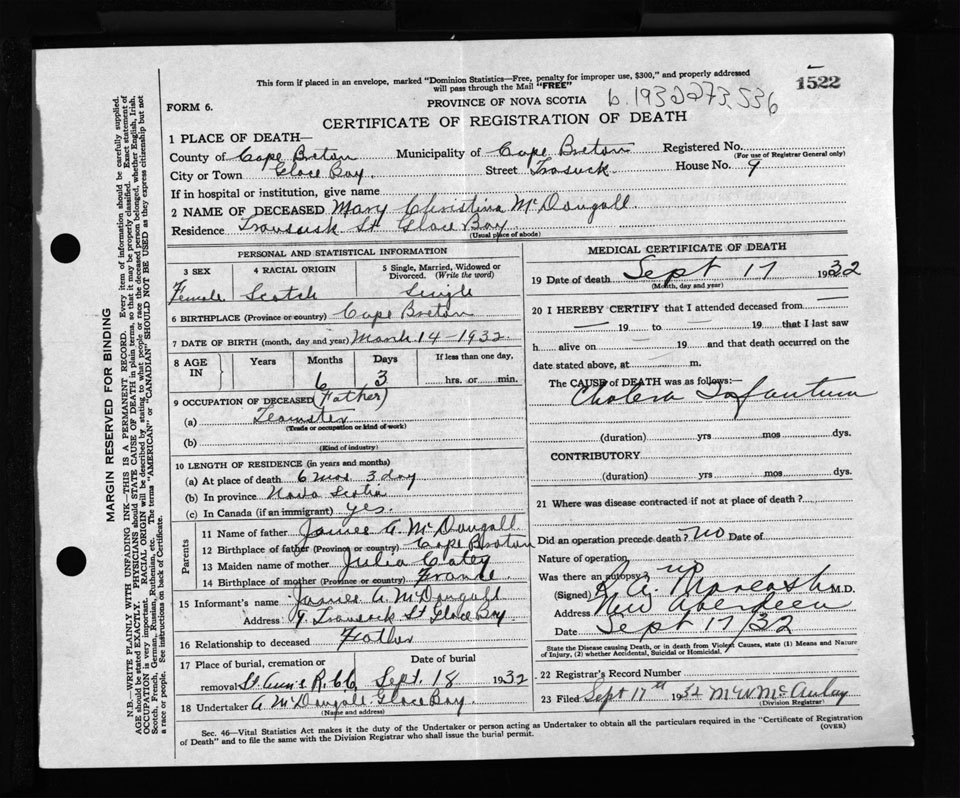 This form if placed in an envelope, marked "Dominion Statistics—Free, penalty for improper use, $300," and properly addressed
will pass through the Mail "FREE"
1522
FORM 6.
PROVINCE OF NOVA SCOTIA
b. 1932 273 536
CERTIFICATE OF REGISTRATION OF DEATH
1 PLACE OF DEATH—
County of Cape Breton Municipality of Cape Breton Registered No.
(For use of Registrar General only)
City or Town Glace Bay. Street House No. 9
If in hospital or institution, give name
2 NAME OF DECEASED Mary Christina McDougall
Residence St Glace Bay
(Usual place of abode)
PERSONAL AND STATISTICAL INFORMATION
3 SEX 4 RACIAL ORIGIN 5 Single, Married, Widowed or Divorced. (Write the word)
Female Scotch Single
6 BIRTHPLACE (Province or country) Cape Breton
7 DATE OF BIRTH (month, day and year) March 14 - 1932
8 AGE IN Years Months Days If less than one day,
6 3 hrs. or min.
9 OCCUPATION OF DECEASED (Father)
(a) Teamster
(Trade or occupation or kind of work)
(b)
(Kind of industry)
10 LENGTH OF RESIDENCE (in years and months)
(a) At place of death 6 mos 3 day
(b) In province Nova Scotia
(c) In Canada (if an immigrant) yes.
Parents
11 Name of father James A. McDougall
12 Birthplace of father (Province or country) Cape Breton
13 Maiden name of mother Julia
14 Birthplace of mother (Province or country) France
15 Informant's name James A. McDougall
Address 9 St Glace Bay
16 Relationship to deceased Father
17 Place of burial, cremation or Date of burial
removal St Ann's R.C. Sept. 18 1932
18 Undertaker A McDougall Glace Bay
(Name and address)
MEDICAL CERTIFICATE OF DEATH
19 Date of death Sept 17 1932
(Month, day and year)
20 I HEREBY CERTIFY that I attended deceased from —
— 19 to — 19 that I last saw
h alive on — 19 and that death occurred on the
date stated above, at — m.
The CAUSE of DEATH was as follows:—
Cholera Infantum
(duration) yrs mos dys.
CONTRIBUTORY
(duration) yrs mos dys.
21 Where was disease contracted if not at place of death?
Did an operation precede death? no Date of
Nature of operation
Was there an autopsy? no
(Signed) M.D.
Address New Aberdeen
Date Sept 17/32
State the Disease causing Death, or in death from Violent Causes, state (1) Means and Nature
of Injury, (2) whether Accidental, Suicidal or Homicidal.
22 Registrar's Record Number
23 Filed Sept 17th 1932 McAulay
(Division Registrar)
Sec. 46—Vital Statistics Act makes it the duty of the Undertaker or person acting as Undertaker to obtain all the particulars required in the "Certificate of Registration
of Death" and to file the same with the Division Registrar who shall issue the burial permit.
(OVER)
MARGIN RESERVED FOR BINDING
N.B.—WRITE PLAINLY WITH UNFADING INK—THIS IS A PERMANENT RECORD. Every item of information should be carefully supplied.
AGE should be stated EXACTLY. PHYSICIANS should STATE CAUSE OF DEATH in plain terms, so that it may be properly classified. Exact statement of
OCCUPATION is very important. RACIAL ORIGIN will be described by stating to what people or race the deceased person belonged, whether English, Irish,
Scotch, French, German, Russian, Ruthenian, etc. The terms "AMERICAN" or "CANADIAN" SHOULD NOT BE USED as they express citizenship but not
a race or people. See instructions on back of Certificate.